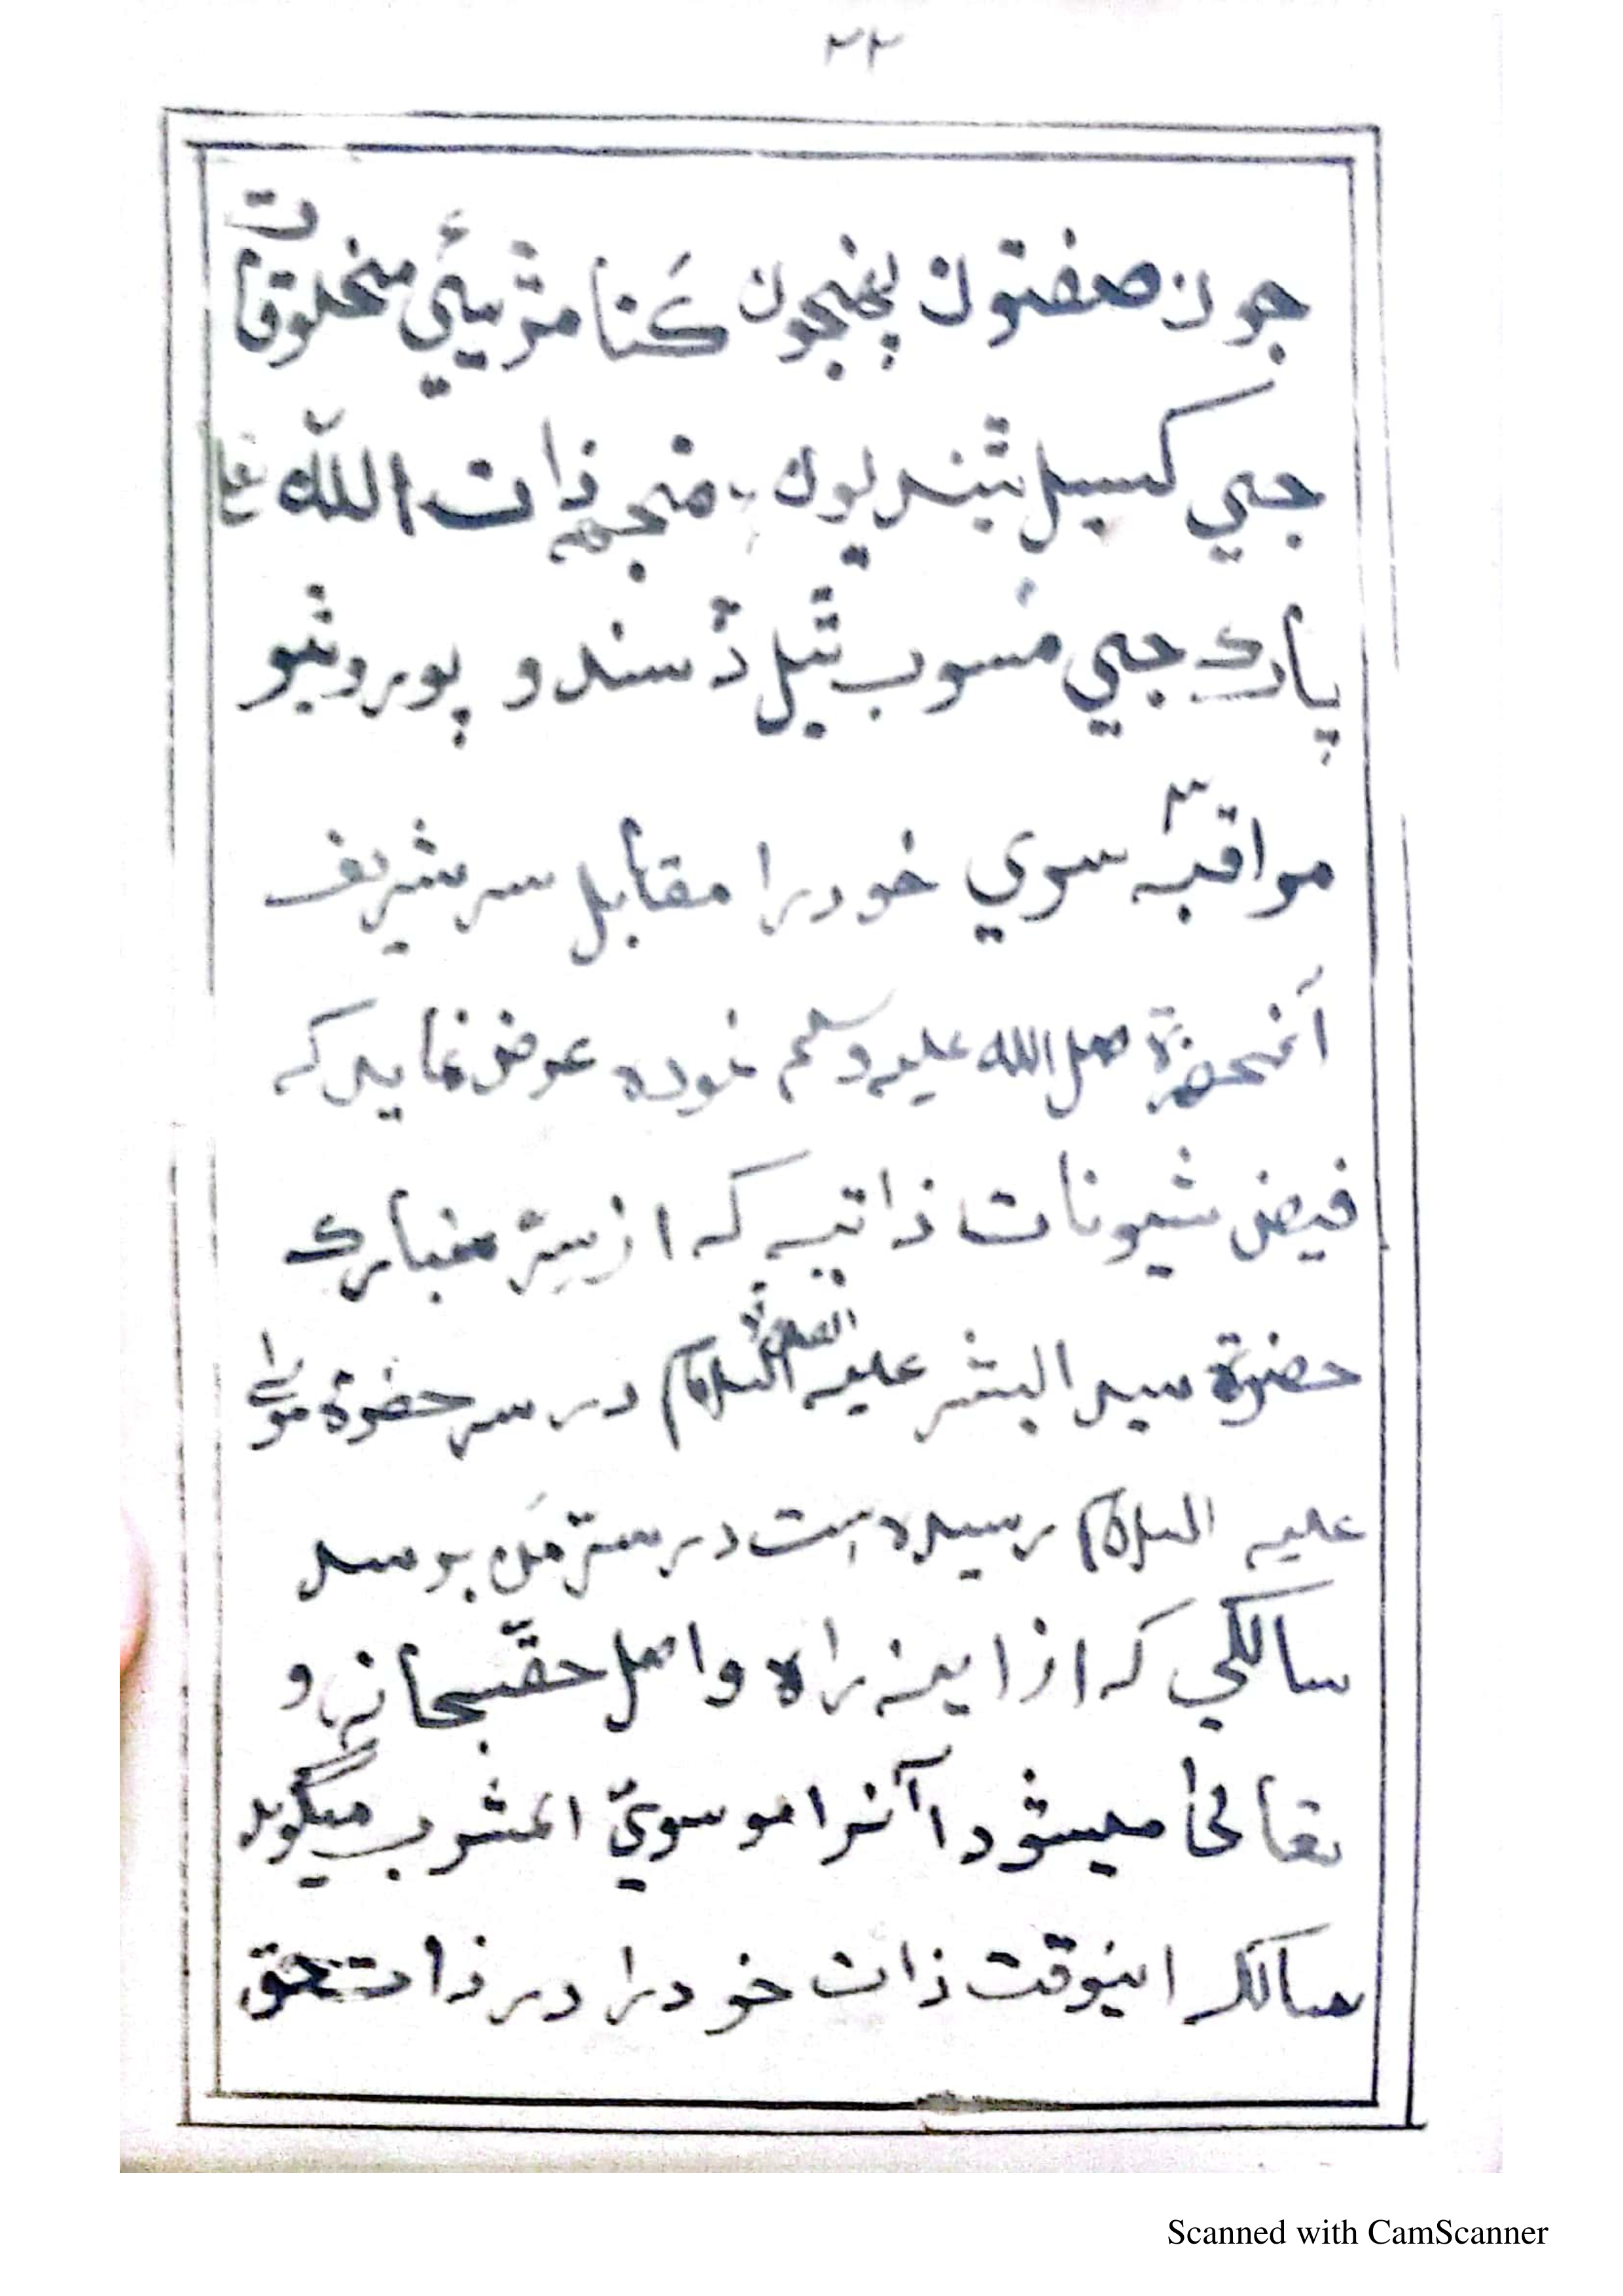 ٢٢
جون صفتون پنھنجون کنا مڙيئي مخلوقات
جي کسيل ٿيندیون، منجھ ذات الله تعالیٰ
پاڪ جي منسوب ٿيل ڏسندو پورو ٿيو
مراقبہ ٣ سوي خود را مقابل سر شریف
آنحضرة صلی الله علیہ وسلم نموده عرض نماید کہ
فیض شیونات ذاتیہ کہ از سرّ مبارک
حضرة سید البشر علیہ الصلوة السلام در سر حضرة موسی
علیہ السلام رسیده است در سرّ من برسد
سالکي کہ از اینراه واصل حق سبحانہ و
تعالیٰ میشود آنرا موسويّ المشرب میگوید
سالک اینوقت ذات خود را در ذات حق
Scanned with CamScanner